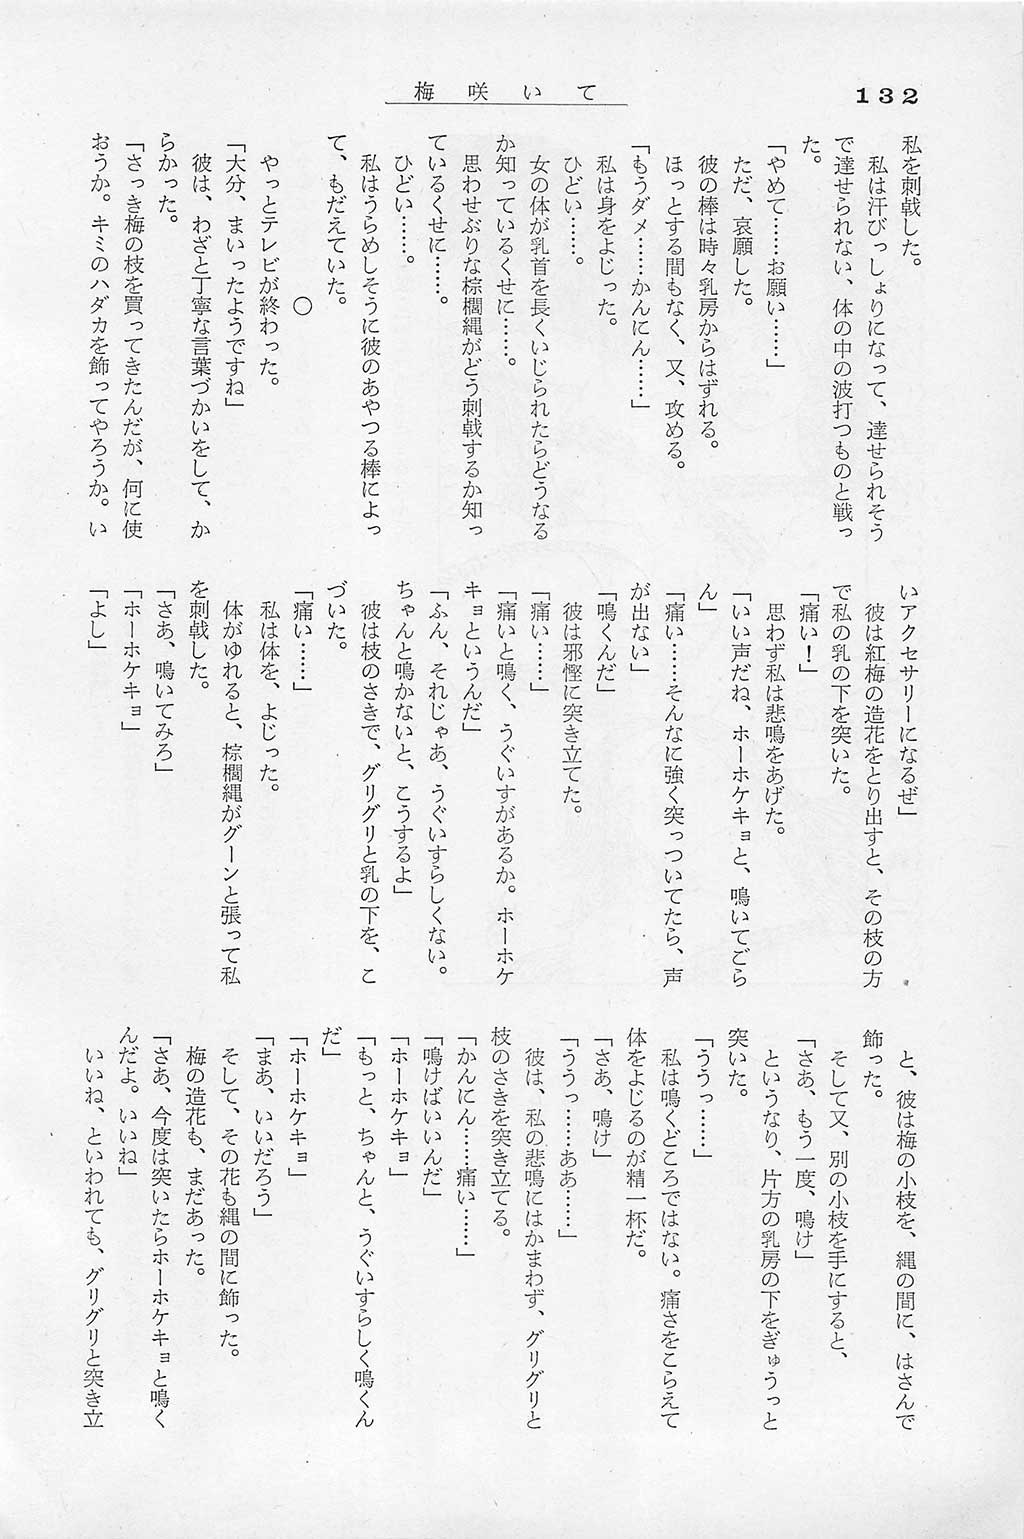 132
梅咲いて
私を刺戟した。
私は汗びっしょりになって、達せられそう
で達せられない、体の中の波打つものと戦っ
た。
「やめて……お願い……」
ただ、哀願した。
彼の棒は時々乳房からはずれる。
ほっとする間もなく、又、攻める。
「もうダメ……かんにん……」
私は身をよじった。
ひどい……。
女の体が乳首を長くいじられたらどうなる
か知っているくせに……。
思わせぶりな棕櫚縄がどう刺戟するか知っ
ているくせに……。
ひどい……。
私はうらめしそうに彼のあやつる棒によっ
て、もだえていた。
○
やっとテレビが終わった。
「大分、まいったようですね」
彼は、わざと丁寧な言葉づかいをして、か
らかった。
「さっき梅の枝を買ってきたんだが、何に使
おうか。キミのハダカを飾ってやろうか。い
いアクセサリーになるぜ」
彼は紅梅の造花をとり出すと、その枝の方
で私の乳の下を突いた。
「痛い！」
思わず私は悲鳴をあげた。
「いい声だね、ホーホケキョと、鳴いてごら
ん」
「痛い……そんなに強く突っついてたら、声
が出ない」
「鳴くんだ」
彼は邪慳に突き立てた。
「痛い……」
「痛いと鳴く、うぐいすがあるか。ホーホケ
キョというんだ」
「ふん、それじゃあ、うぐいすらしくない。
ちゃんと鳴かないと、こうするよ」
彼は枝のさきで、グリグリと乳の下を、こ
づいた。
「痛い……」
私は体を、よじった。
体がゆれると、棕櫚縄がグーンと張って私
を刺戟した。
「さあ、鳴いてみろ」
「ホーホケキョ」
「よし」
と、彼は梅の小枝を、縄の間に、はさんで
飾った。
そして又、別の小枝を手にすると、
「さあ、もう一度、鳴け」
というなり、片方の乳房の下をぎゅうっと
突いた。
「ううっ……」
私は鳴くどころではない。痛さをこらえて
体をよじるのが精一杯だ。
「さあ、鳴け」
「ううっ……ああ……」
彼は、私の悲鳴にはかまわず、グリグリと
枝のさきを突き立てる。
「かんにん……痛い……」
「鳴けばいいんだ」
「ホーホケキョ」
「もっと、ちゃんと、うぐいすらしく鳴くん
だ」
「ホーホケキョ」
「まあ、いいだろう」
そして、その花も縄の間に飾った。
梅の造花も、まだあった。
「さあ、今度は突いたらホーホケキョと鳴く
んだよ。いいね」
いいね、といわれても、グリグリと突き立